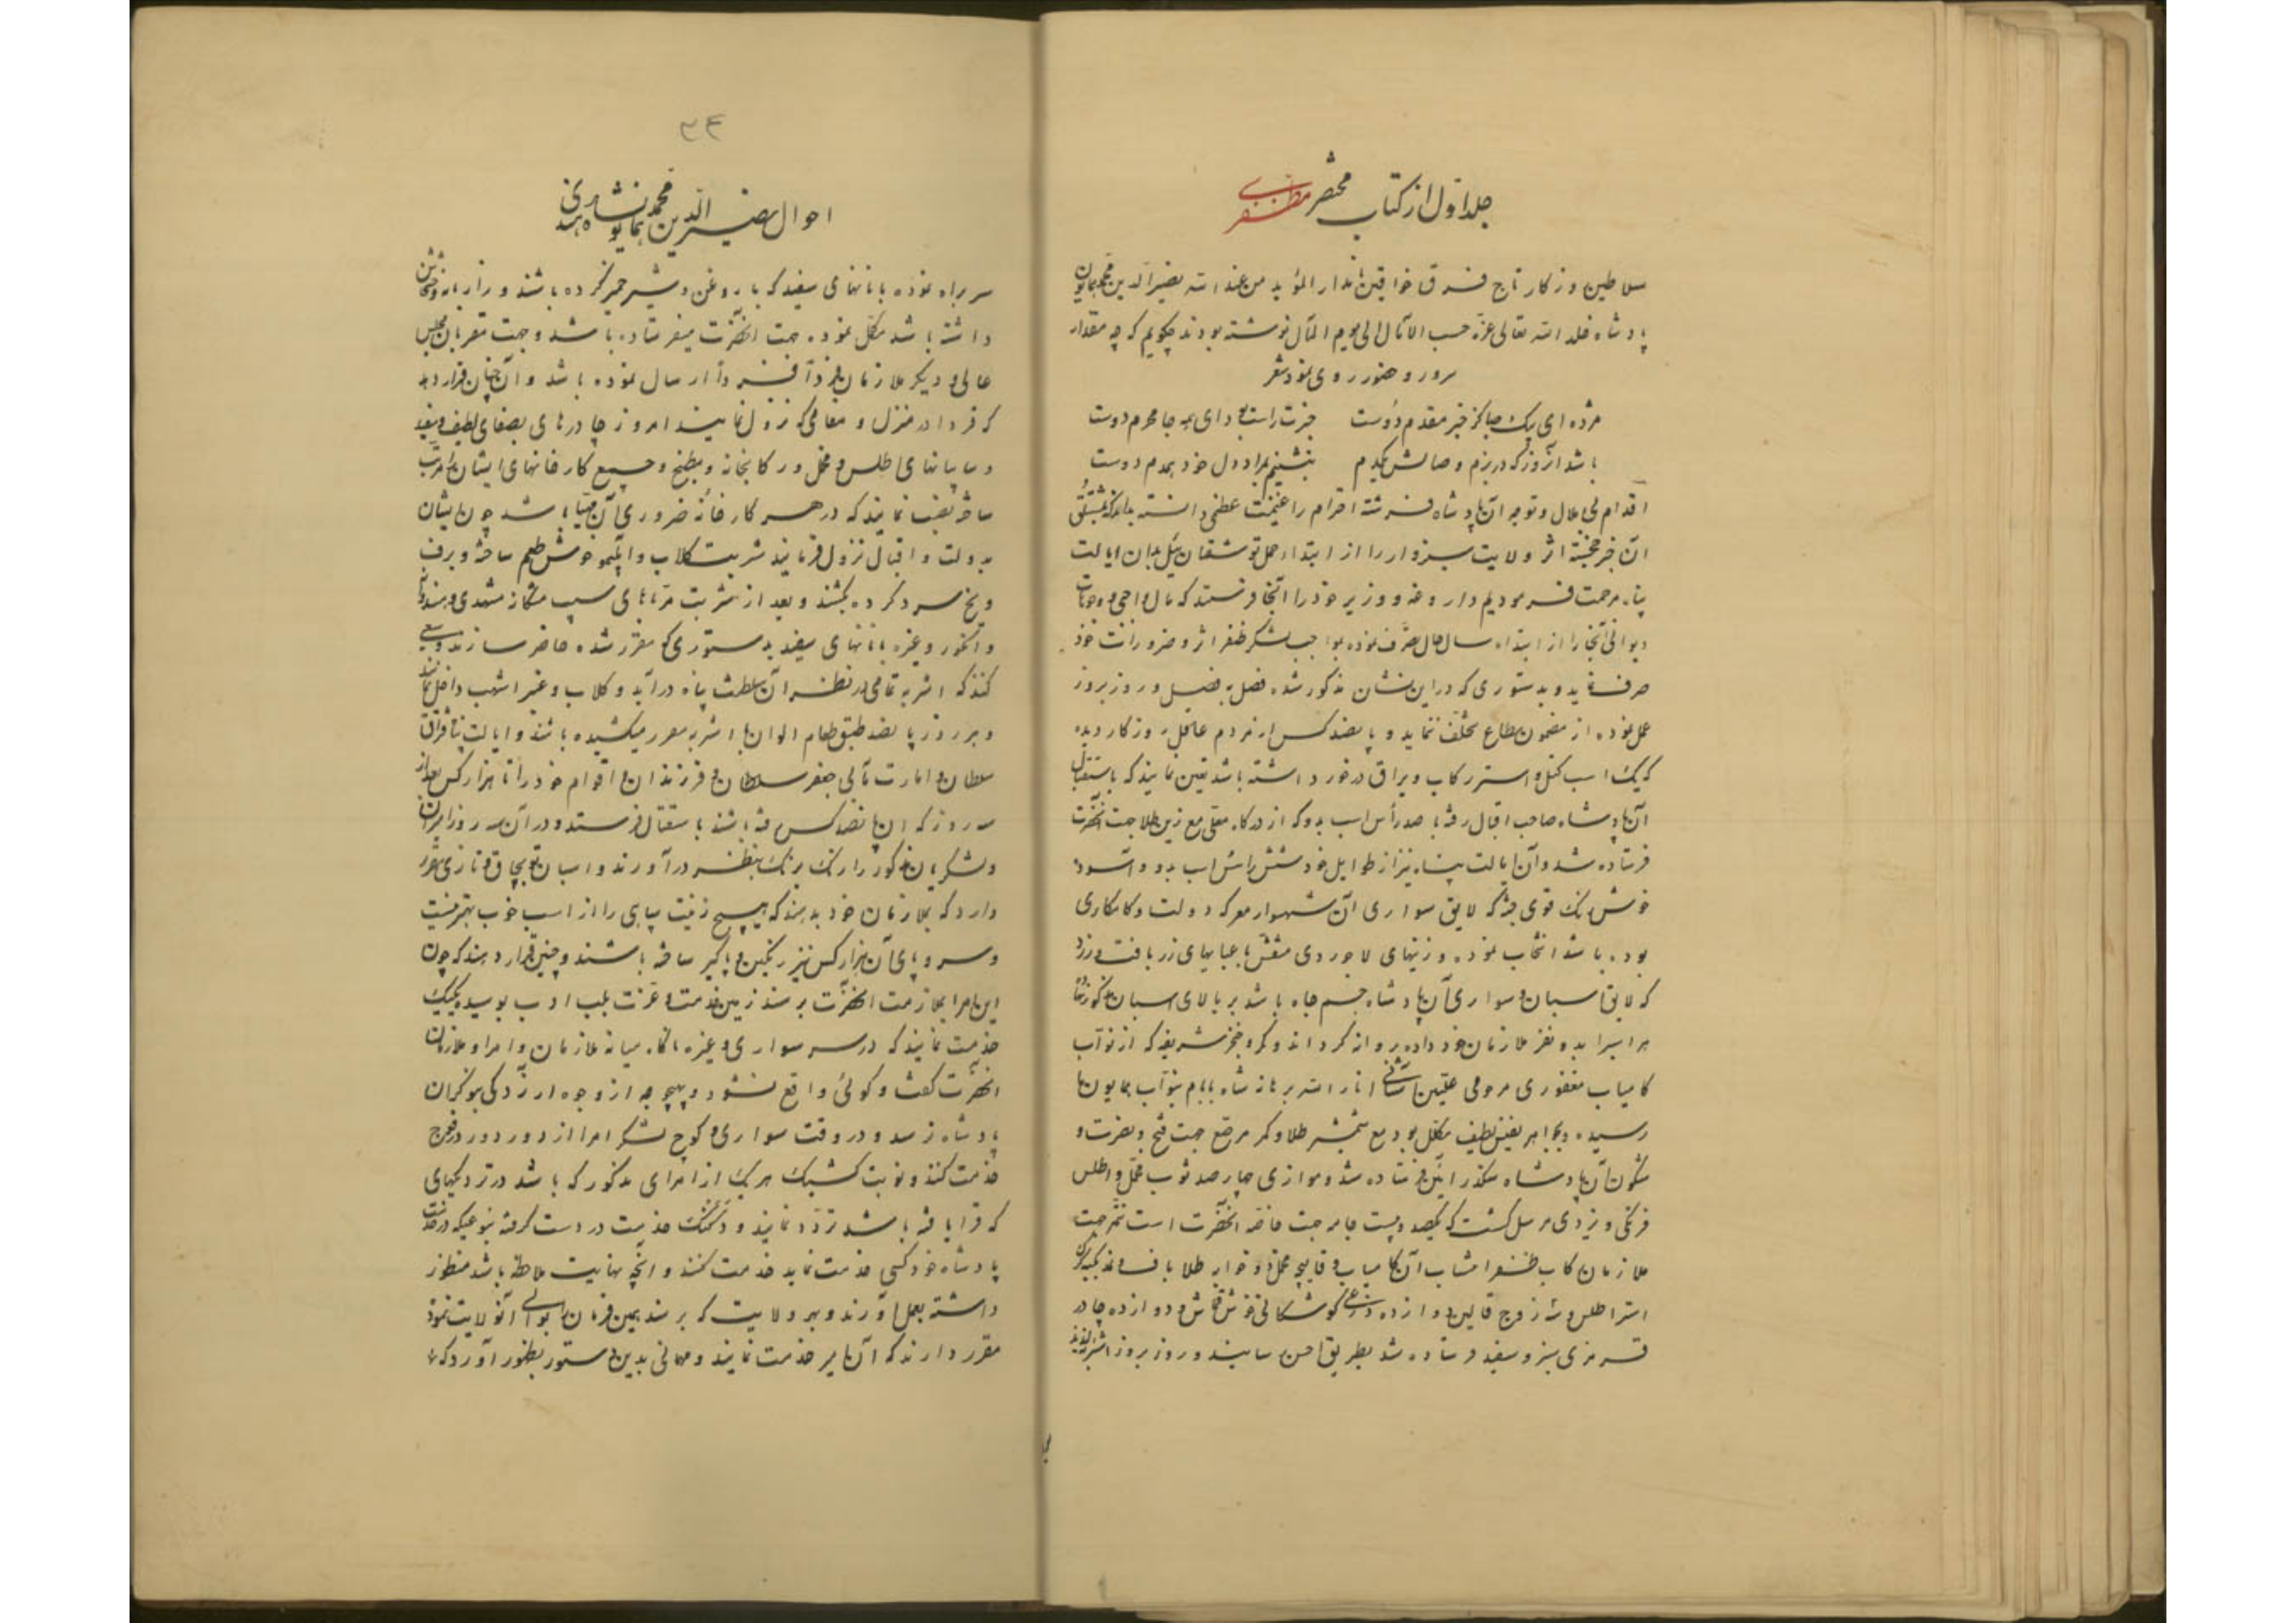 جلد اول از کتاب مختصر مظفری
سلاطین روزکار تاج فرق خواقین نامدار المؤید من عند الله نصیر الدین محمد همایون
پادشاه خلد الله تعالی عزه حسب الآمال الی یوم المآل نوشته بودند چکویم که چه مقدار
سرور و حضور روی نمود شعر
مژده ای پیک صبا کز خبر مقدم دوست خبرت راست بود ای همه جا محرم دوست
باشد آنروز که در بزم وصالش یکدم بنشینم بمراد دل خود همدم دوست
اقدام بی ملال و توجه آن پادشاه فرشته احترام را غنیمت عظمی دانسته بداند که بمشتلق
آن خبر خجسته اثر ولایت سبزوار را از ابتداء حمل توشقان ئیل بدان ایالت
پناه مرحمت فرمودیم داروغه و وزیر خود را آنجا فرستد که مال واجبی و وجوهات
دیوانی آنجا را از ابتداء سال حال تصرف نموده بمواجب لشکر ظفر اثر و ضروریات خود
صرف نماید و بدستوری که در این نشان مذکور شده فصل بفصل و روز بروز
عمل نموده از مضمون مطاع تخلف ننماید و پانصد کس از مردم عاقل روزکار دیده
که یک اسب کتل و استر رکاب و یراق در خور داشته باشد تعیین نمایند که باستقبال
آن پادشاه صاحب اقبال رفته با صد رأس اسب بدو که از درکاه معلی مع زین طلا جهت آنحضرت
فرستاده شد و آن ایالت پناه نیز از طوایل خود شش رأس اسب بدو آسوده
خوش رنک قوی جثه که لایق سواری آن شهسوار معرکه دولت و کامکاری
بوده باشد انتخاب نموده و زینهای لاجوردی منقش با عبایهای زربافت و زرد
که لایق اسبان و سواری آن پادشاه جم جاه باشد بر بالای اسبان مذکور
هر اسبرا بدو نفر ملازمان خود داده روانه کرداند و کمر و خنجر شریفه که از نواب
کامیاب مغفوری مرحومی علیین آشیانی انار الله برهانه شاه بابام بنواب همایون ما
رسیده و بجواهر نفیس لطیف مکلل بود مع شمشیر طلا و کمر مرصع جهت فتح و نصرت و
شکون آن پادشاه سکندر آئین فرستاده شد و موازی چهارصد ثوب مخمل و اطلس
فرنکی و یزدی مرسل کشت که یکصد و بیست جامه جهت خاصه آنحضرت است تتمه جهت
ملازمان رکاب ظفر انتساب آن کامیاب و قالیچه مخمل دو خوابه طلا باف و نمد تکیه کرکی
استر اطلس و سه زوج قالین دوازده ذرعی کوشکانی خوش قماش و دوازده چادر
قرمزی سبز و سفید فرستاده شد بطریق احسن رسانیده و روز بروز اشربه لذیذ
۳۴
احوال نصیر الدین محمد همایون پادشاه هندی
سربراه نموده با نانهای سفید که با روغن و شیر خمیر کرده باشند و رازیانه و خشخاش
داشته باشد مکمل نموده جهت آنحضرت میفرستاده باشد و جهت مقربان مجلس
عالی و دیکر ملازمان فرداً فرداً ارسال نموده باشد و آن چنان قرار دهد
که فردا در منزل و مقامی که نزول نمایند امروز چادرهای بصفای لطیف سفید
و سایبانهای اطلس و مخمل و رکابخانه و مطبخ و جمیع کارخانهای ایشان را مرتب
ساخته نصب نمایند که در هر کارخانهٔ ضروری آن مهیا باشد چون ایشان
بدولت و اقبال نزول فرمایند شربت کلاب و آبلیموی خوش طعم ساخته و برف
و یخ سرد کرده بکشند و بعد از شربت مرباهای سیب مشکان مشهدی و هندوانه
و انکور و غیره با نانهای سفید بدستوری که مقرر شده حاضر سازند و سعی
کنند که اشربه تمامی در نظر آن سلطنت پناه درآید و کلاب و عنبر اشهب داخل نمایند
و هر روز پانصد طبق طعام الوان با اشربه مقرر میکشیده باشند و ایالت پناه قزاق
سلطان و امارت مآبی جعفر سلطان و فرزندان و اقوام خود را تا هزار کس بعد از
سه روز که آن پانصد کس رفته باشند باستقبال فرستد و در آن سه روز امرای
و لشکریان مذکور را رنک برنک بنظر درآورند و اسبان توپچاق و تازی مقرر
دارد که بملازمان خود بدهند که هیچ زینت سپاهی را از اسب خوب بهتر نیست
و سر و پای آن هزار کس نیز رنکین و پاکیزه ساخته باشند و چنین قرار دهند که چون
این امرا بملازمت آنحضرت برسند زمین خدمت و عزت بلب ادب بوسیده یک یک
خدمت نمایند که در سر سواری و غیره ناکاه میانه ملازمان و امرا و ملازمان
آنحضرت کفت و کوئی واقع نشود و بهیچ وجه از وجوه آزردکی بنوکران
پادشاه نرسد و در وقت سواری و کوچ لشکر امرا از دور دور در فوج
خدمت کنند و نوبت کشیک هر یک از امرای مذکور که باشد در نزدیکیهای
که قرار یافته باشد تردد نمایند و دکنک خدمت در دست کرفته بنوعیکه در خدمت
پادشاه خود کسی خدمت نماید خدمت کنند و آنچه نهایت ملاحظه باشد منظور
داشته بعمل آورند و بهر ولایت که برسند همین فرمان را بوالی آنولایت نموده
مقرر دارند که آن امیر خدمت نمایند و مهمانی بدین دستور بظهور آورد که